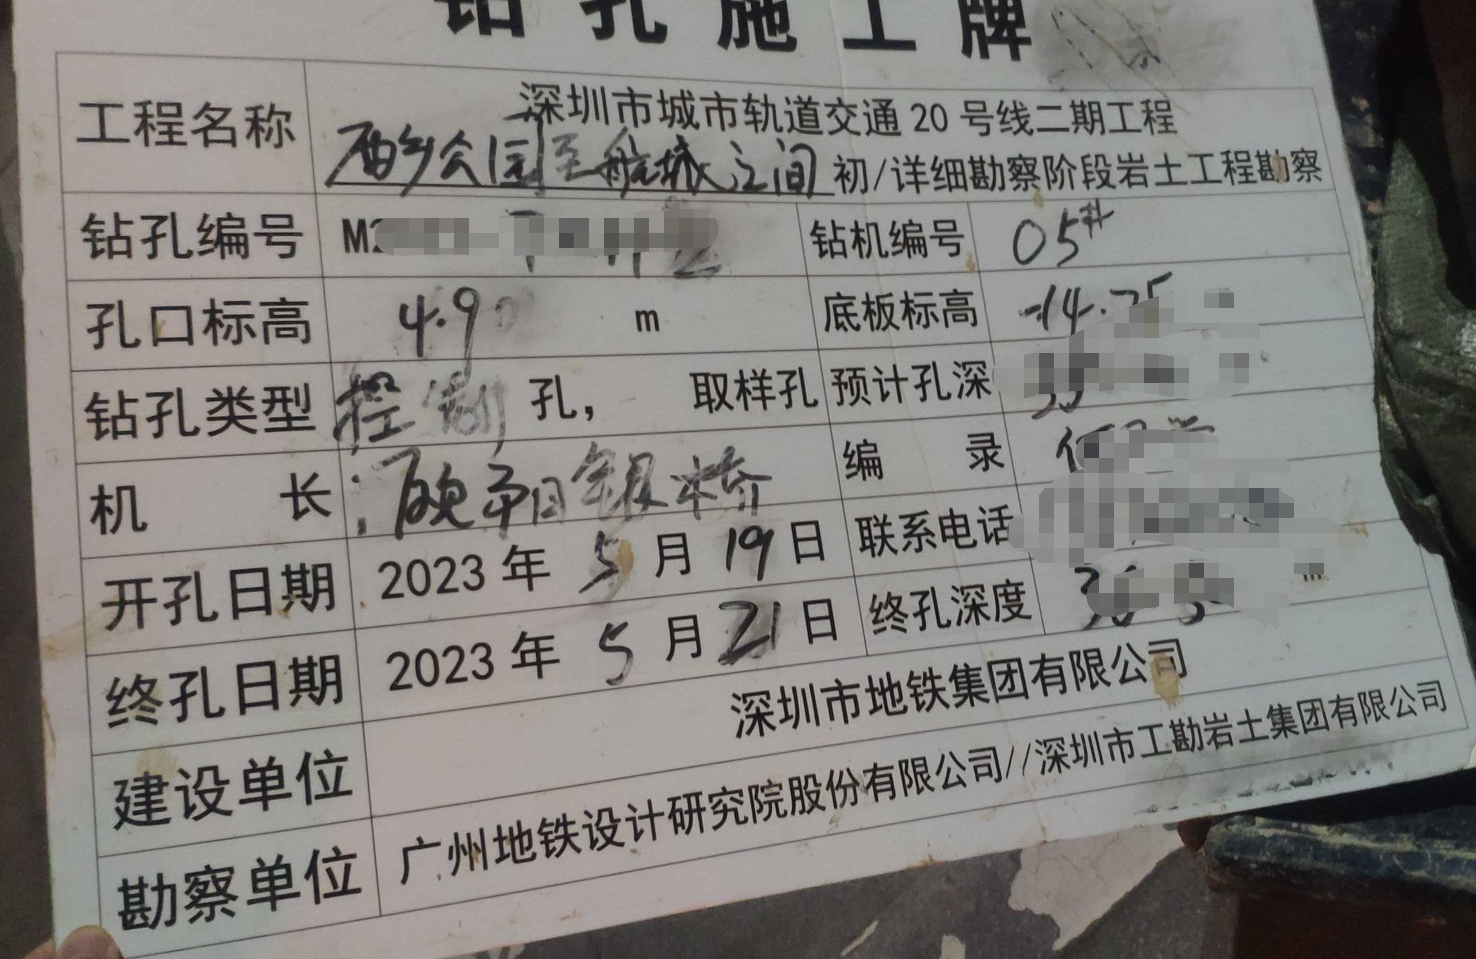 钻孔施工牌
工程名称 深圳市城市轨道交通20号线二期工程
西乡公园至航城之间 初/详细勘察阶段岩土工程勘察
钻孔编号 钻机编号 05#
孔口标高 4.90 m 底板标高 -14.75
钻孔类型 控制 孔， 取样孔 预计孔深
机 长 编 录
开孔日期 2023 年 5 月 19 日 联系电话
终孔日期 2023 年 5 月 21 日 终孔深度 m
建设单位 深圳市地铁集团有限公司
勘察单位 广州地铁设计研究院股份有限公司//深圳市工勘岩土集团有限公司